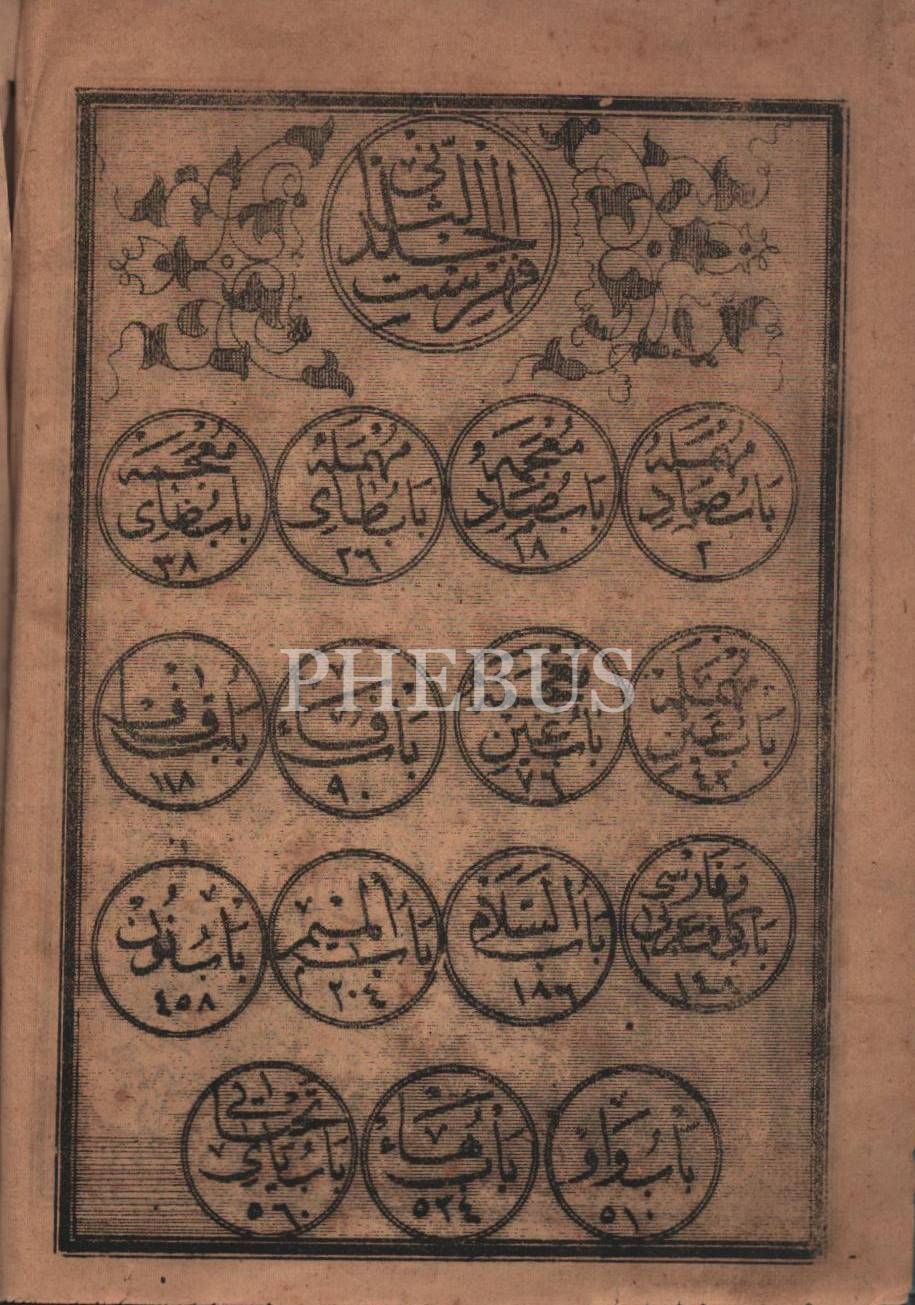 فهرست
الجلد
الثانى
باب صاد
مهمله
٢
باب ضاد
معجمه
١٨
باب طاى
مهمله
٢٦
باب ظاى
معجمه
٣٨
باب عين
مهمله
٤٢
باب غين
معجمه
٧٦
باب فاء
٩٠
باب قاف
١١٨
باب كاف عربى
و فارسى
باب اللام
١٨٦
باب الميم
٢٠٤
باب نون
٤٥٨
باب واو
٥١٠
باب هاء
٥٣٤
باب ياى
تحتانى
٥٦٠
PHEBUS